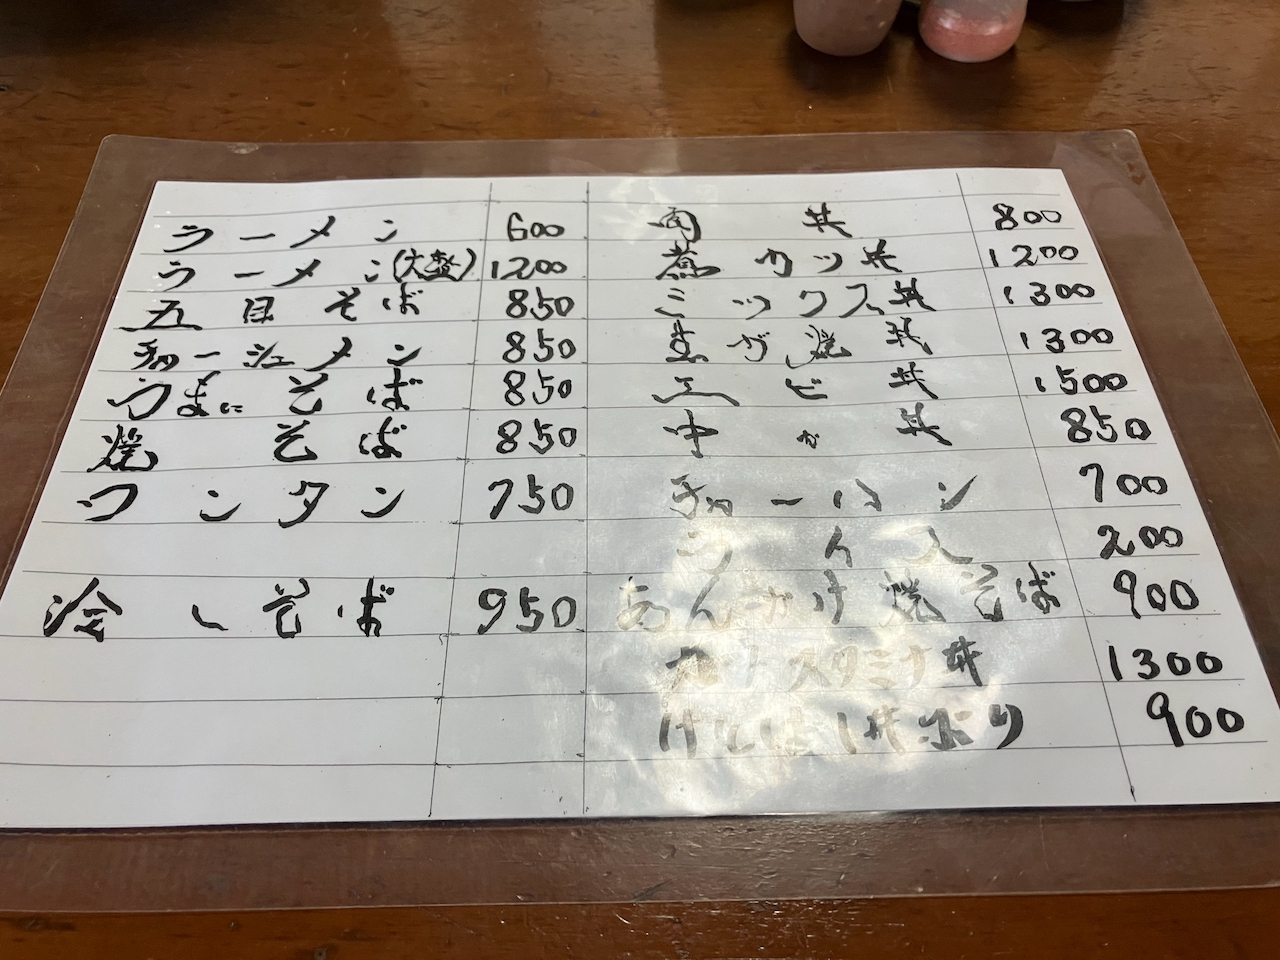 ラーメン 600
ラーメン(大盛) 1200
五目そば 850
チャーシューメン 850
うまにそば 850
焼そば 850
ワンタン 750
冷しそば 950
肉丼 800
煮カツ丼 1200
ミックス丼 1300
生が焼丼 1300
エビ丼 1500
中か丼 850
チャーハン 700
ライス 200
あんかけ焼そば 900
スタミナ丼 1300
900